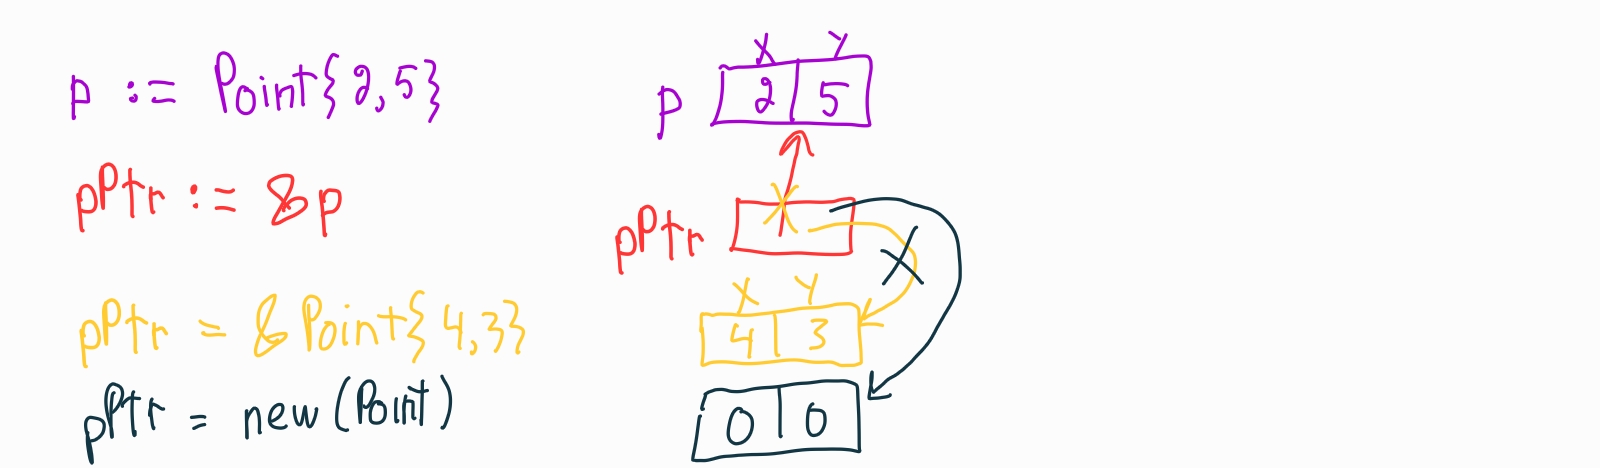 p := Point{2,5}
pPtr := &p
pPtr = &Point{4,3}
pPtr = new(Point)
X Y
p 2 5
pPtr
X Y
4 3
0 0